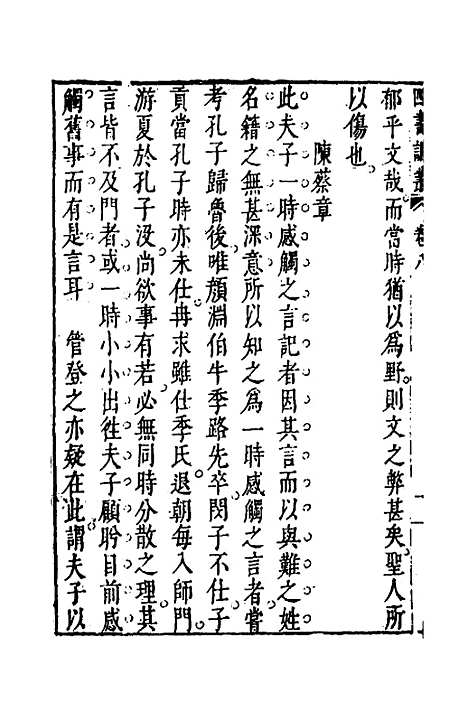 郁乎文哉而當時猶以爲野則文之弊甚矣聖人所
以傷也
陳蔡章
此夫子一時感觸之言記者因其言而以與難之姓
名籍之無甚深意所以知之爲一時感觸之言者嘗
考孔子歸魯後唯顏淵伯牛季路先卒閔子不仕子
貢當孔子時亦未仕冉求雖仕季氏退朝每入師門
游夏於孔子沒尚欲事有若必無同時分散之理其
言皆不及門者或一時小小出徃夫子顧盻目前感
觸舊事而有是言耳 管登之亦疑在此謂夫子以